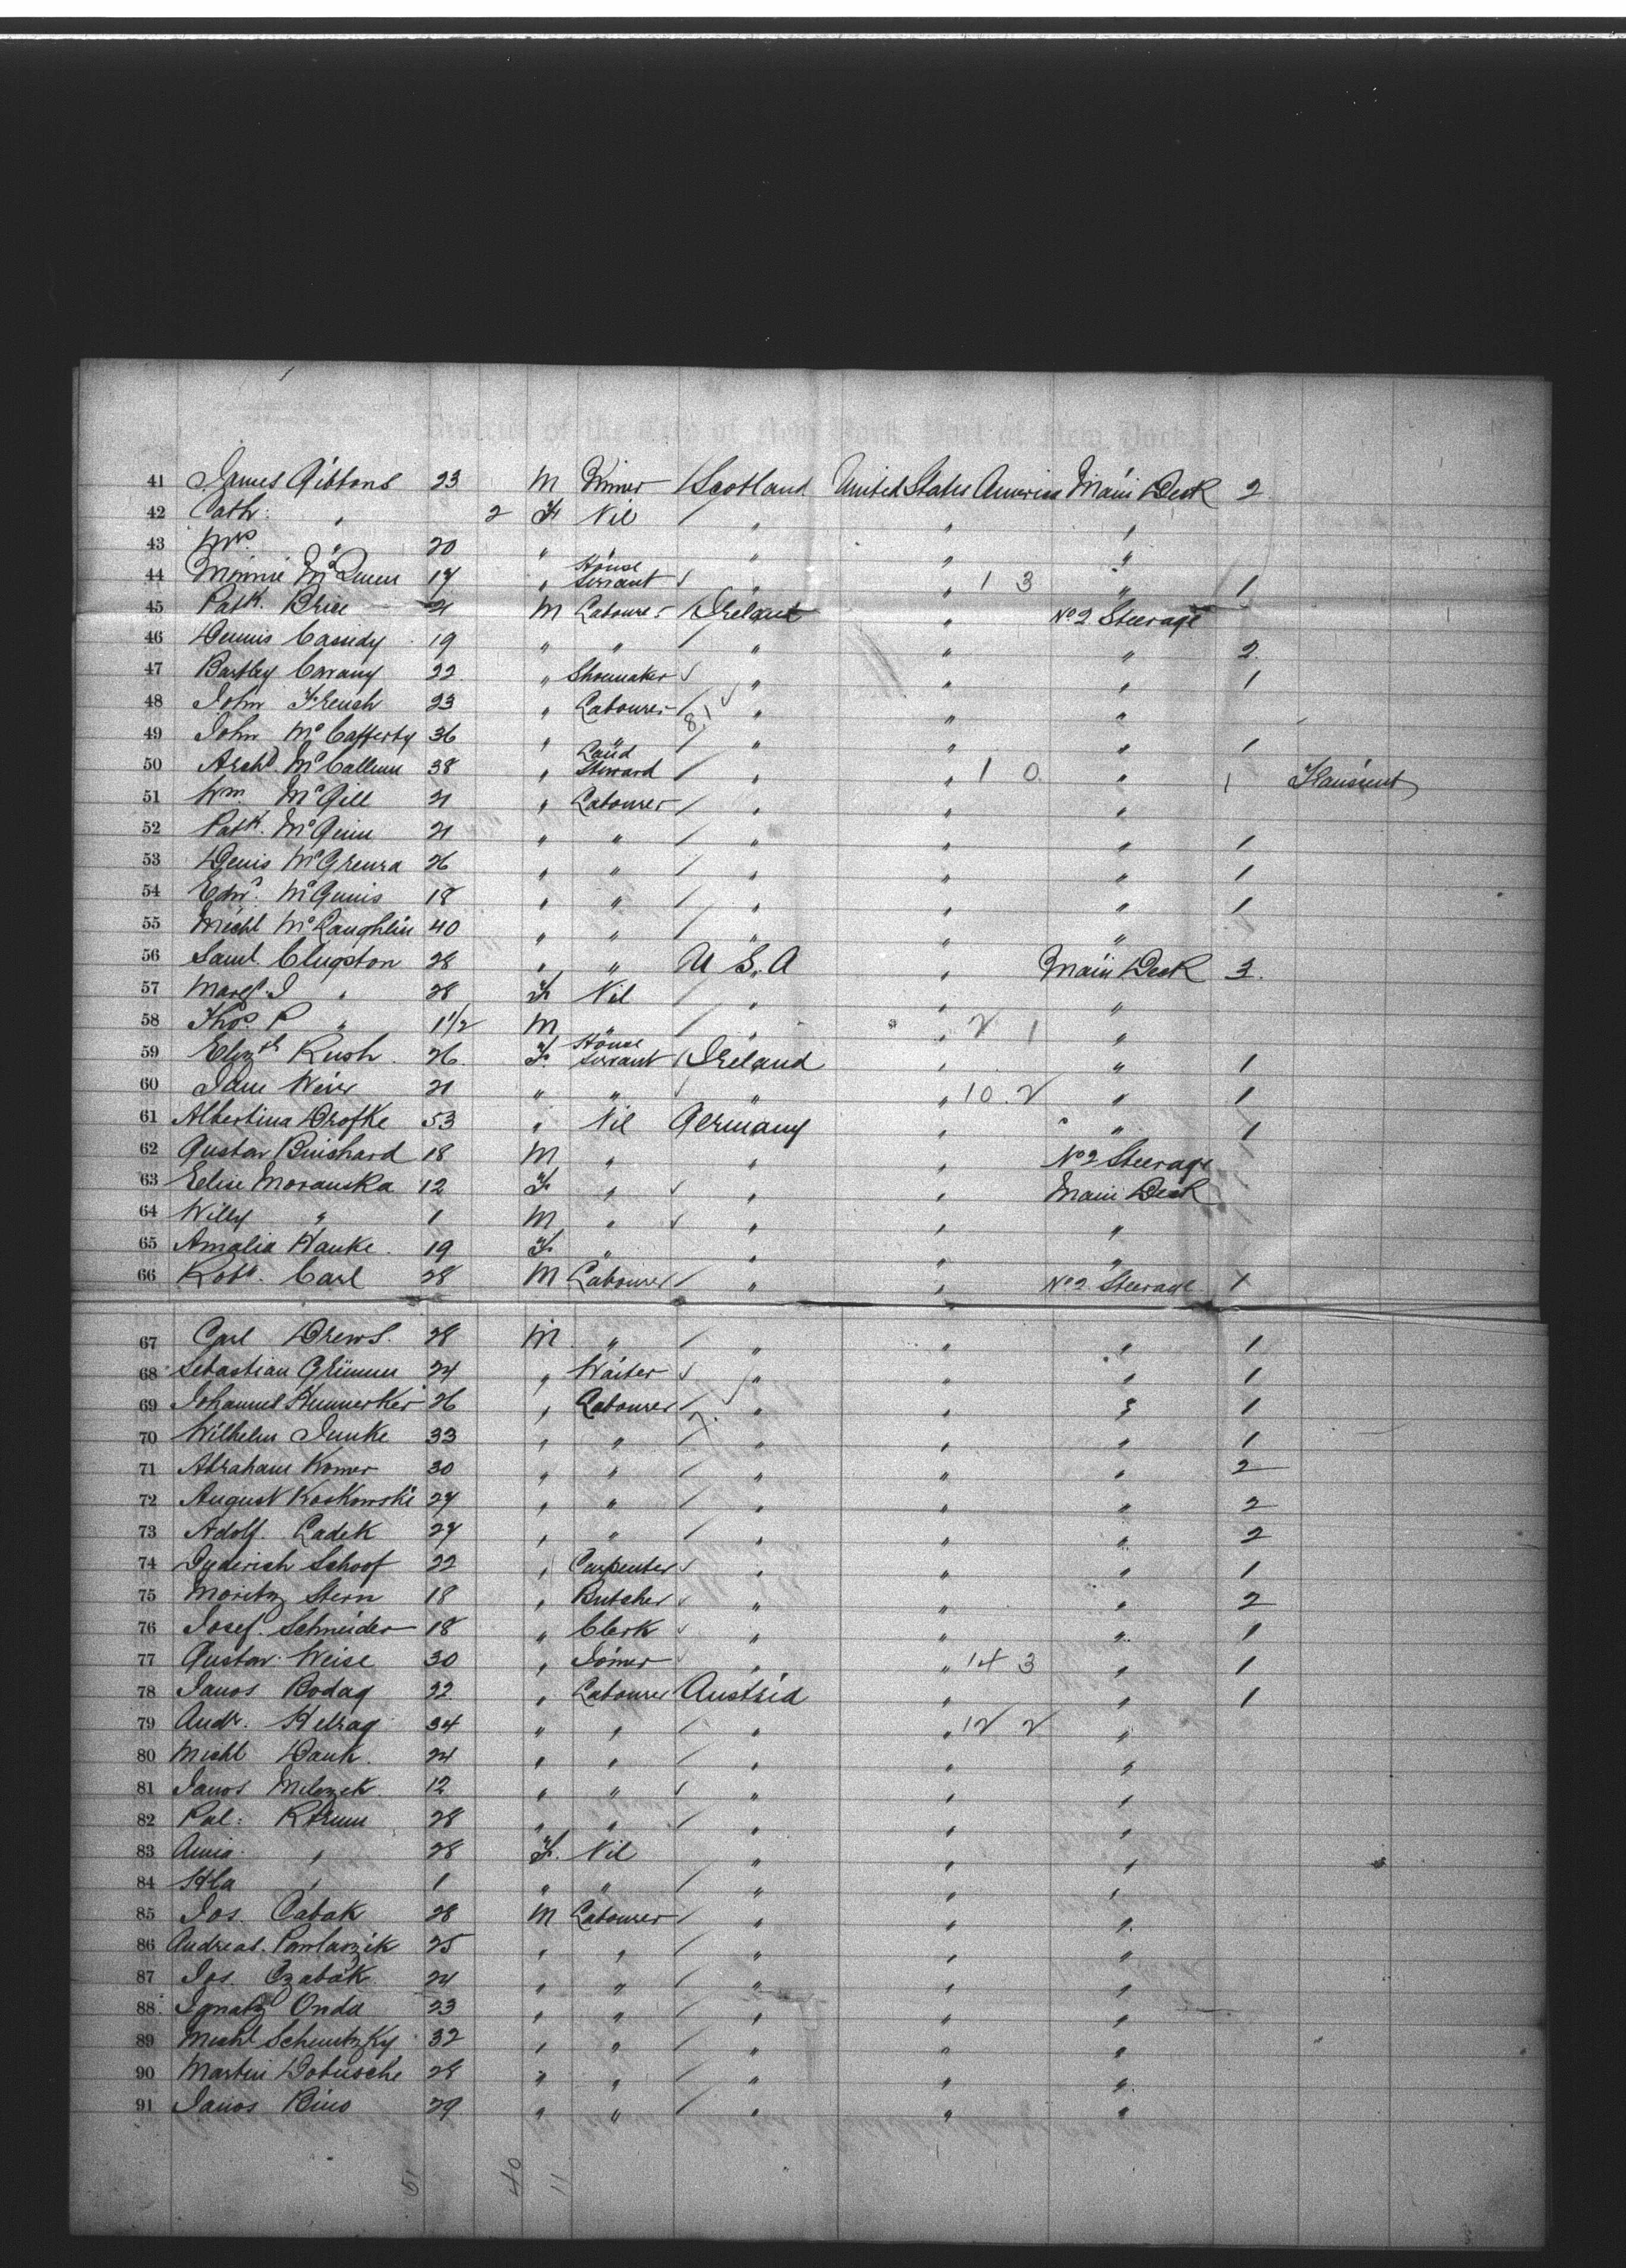 District of the City of New York, Port of New York
41 James Gibbons 23 M Miner / Scotland United States America Main Deck 2
42 Cath: " 2 F Nil / " " "
43 Mrs. " 20 " " " "
44 Minnie McQueen 17 " House Servant ✓ " " 1 3 " 1
45 Patk. Brice 21 M Labourer / Ireland " No 2 Steerage
46 Dennis Casidy 19 " " / " " " 2
47 Bartley 22 " Shoemaker ✓ " " " 1
48 John French 23 " Labourer / " " "
49 John McCafferty 36 " " / " " " 1
50 Archd. McCallum 38 " Land Steward / " " 1 0 " 1 Transient
51 Wm. McGill 21 " Labourer / " " "
52 Patk. McGinn 21 " " / " " " 1
53 Denis 26 " " / " " " 1
54 Edwd. McGinnis 18 " " / " " " 1
55 Michl McLaughlin 40 " " / " " "
56 Saml. Clugston 28 " " U.S.A " Main Deck 3
57 Margt. J " 28 F Nil / " " "
58 Thos P " 1 1/2 M " / " " 2 1 "
59 Elizth Rush 26 F. House Servant / Ireland " " 1
60 Jane Weir 21 " " ✓ " " 10.2 " 1
61 Albertina Drofke 53 " Nil Germany " " 1
62 Gustav 18 M " " " No 2 Steerage
63 Elise Moranska 12 F " ✓ " " Main Deck
64 Willy " 1 M " ✓ " " "
65 Amalia Hanke 19 F " " " "
66 Robt. Carl 28 M Labourer / " " No 2 Steerage 1
67 Carl Drews. 28 M " / " " " 1
68 Sebastian Grümm 24 " Waiter ✓ " " " 1
69 Johannes 26 " Labourer / " " " 1
70 Wilhelm Junke 33 " " / " " " 1
71 Abraham Komer 30 " " / " " " 2
72 August Koskowski 27 " " / " " " 2
73 Adolf. Ladek 27 " " / " " " 2
74 Dyderich Schoof 22 " Carpenter ✓ " " " 1
75 Moritz Stern 18 " Butcher ✓ " " " 2
76 Josef. Schneider 18 " Clerk ✓ " " " 1
77 Gustav. Weise 30 " Joiner ✓ " " 14 3 " 1
78 Janos Bodag 22 " Labourer Austria " " 1
79 Andr. 34 " " / " " 12 2 "
80 Michl Dank 24 " " / " " "
81 Janos 12 " " ✓ " " "
82 Pal: 28 " " / " " "
83 " 28 F. Nil " " "
84 " 1 " " / " " "
85 Jos. Cabak 28 M Labourer / " " "
86 Andreas. 25 " " / " " "
87 Jos. Czabak 24 " " / " " "
88 Ignatz Onda 23 " " / " " "
89 Michl 32 " " / " " "
90 Martin 28 " " / " " "
91 Janos 29 " " / " " "
51 40 11